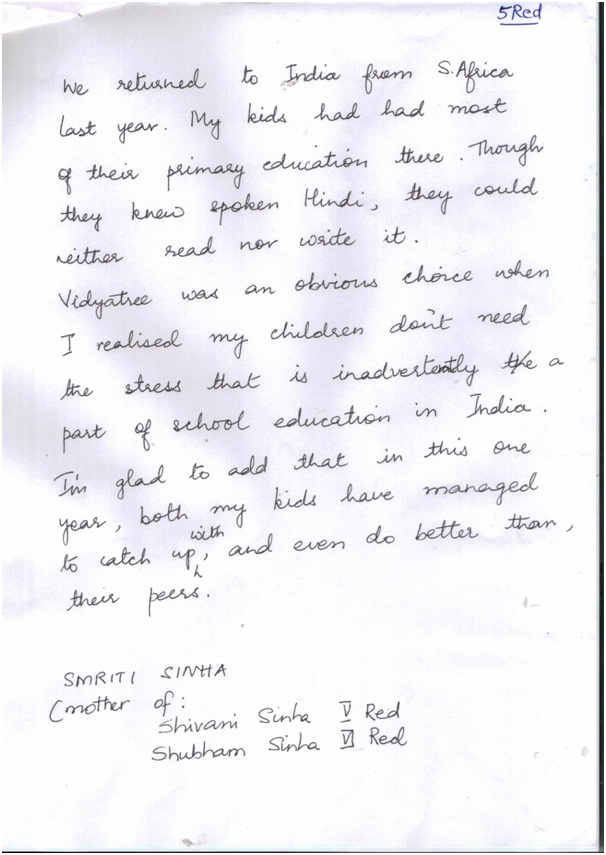 5Red
We returned to India from S.Africa
last year. My kids had had most
of their primary education there. Though
they knew spoken Hindi, they could
neither read nor write it.
Vidyatree was an obvious choice when
I realised my children don't need
the stress that is inadvertently the a
part of school education in India.
I'm glad to add that in this one
year, both my kids have managed
to catch up with, and even do better than,
their peers.
SMRITI SINHA
(mother of:
Shivani Sinha V Red
Shubham Sinha VI Red